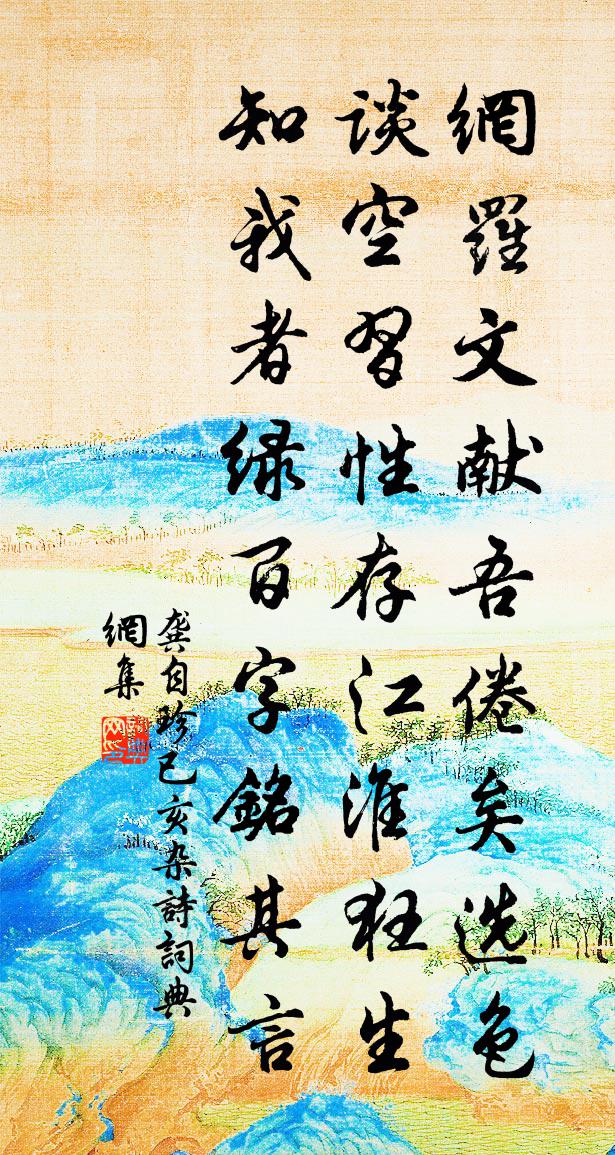 網羅文献吾倦矣选色
谈空習性存江淮狂生
知我者绿百字銘其言
龚自珍己亥杂詩詞典
網集